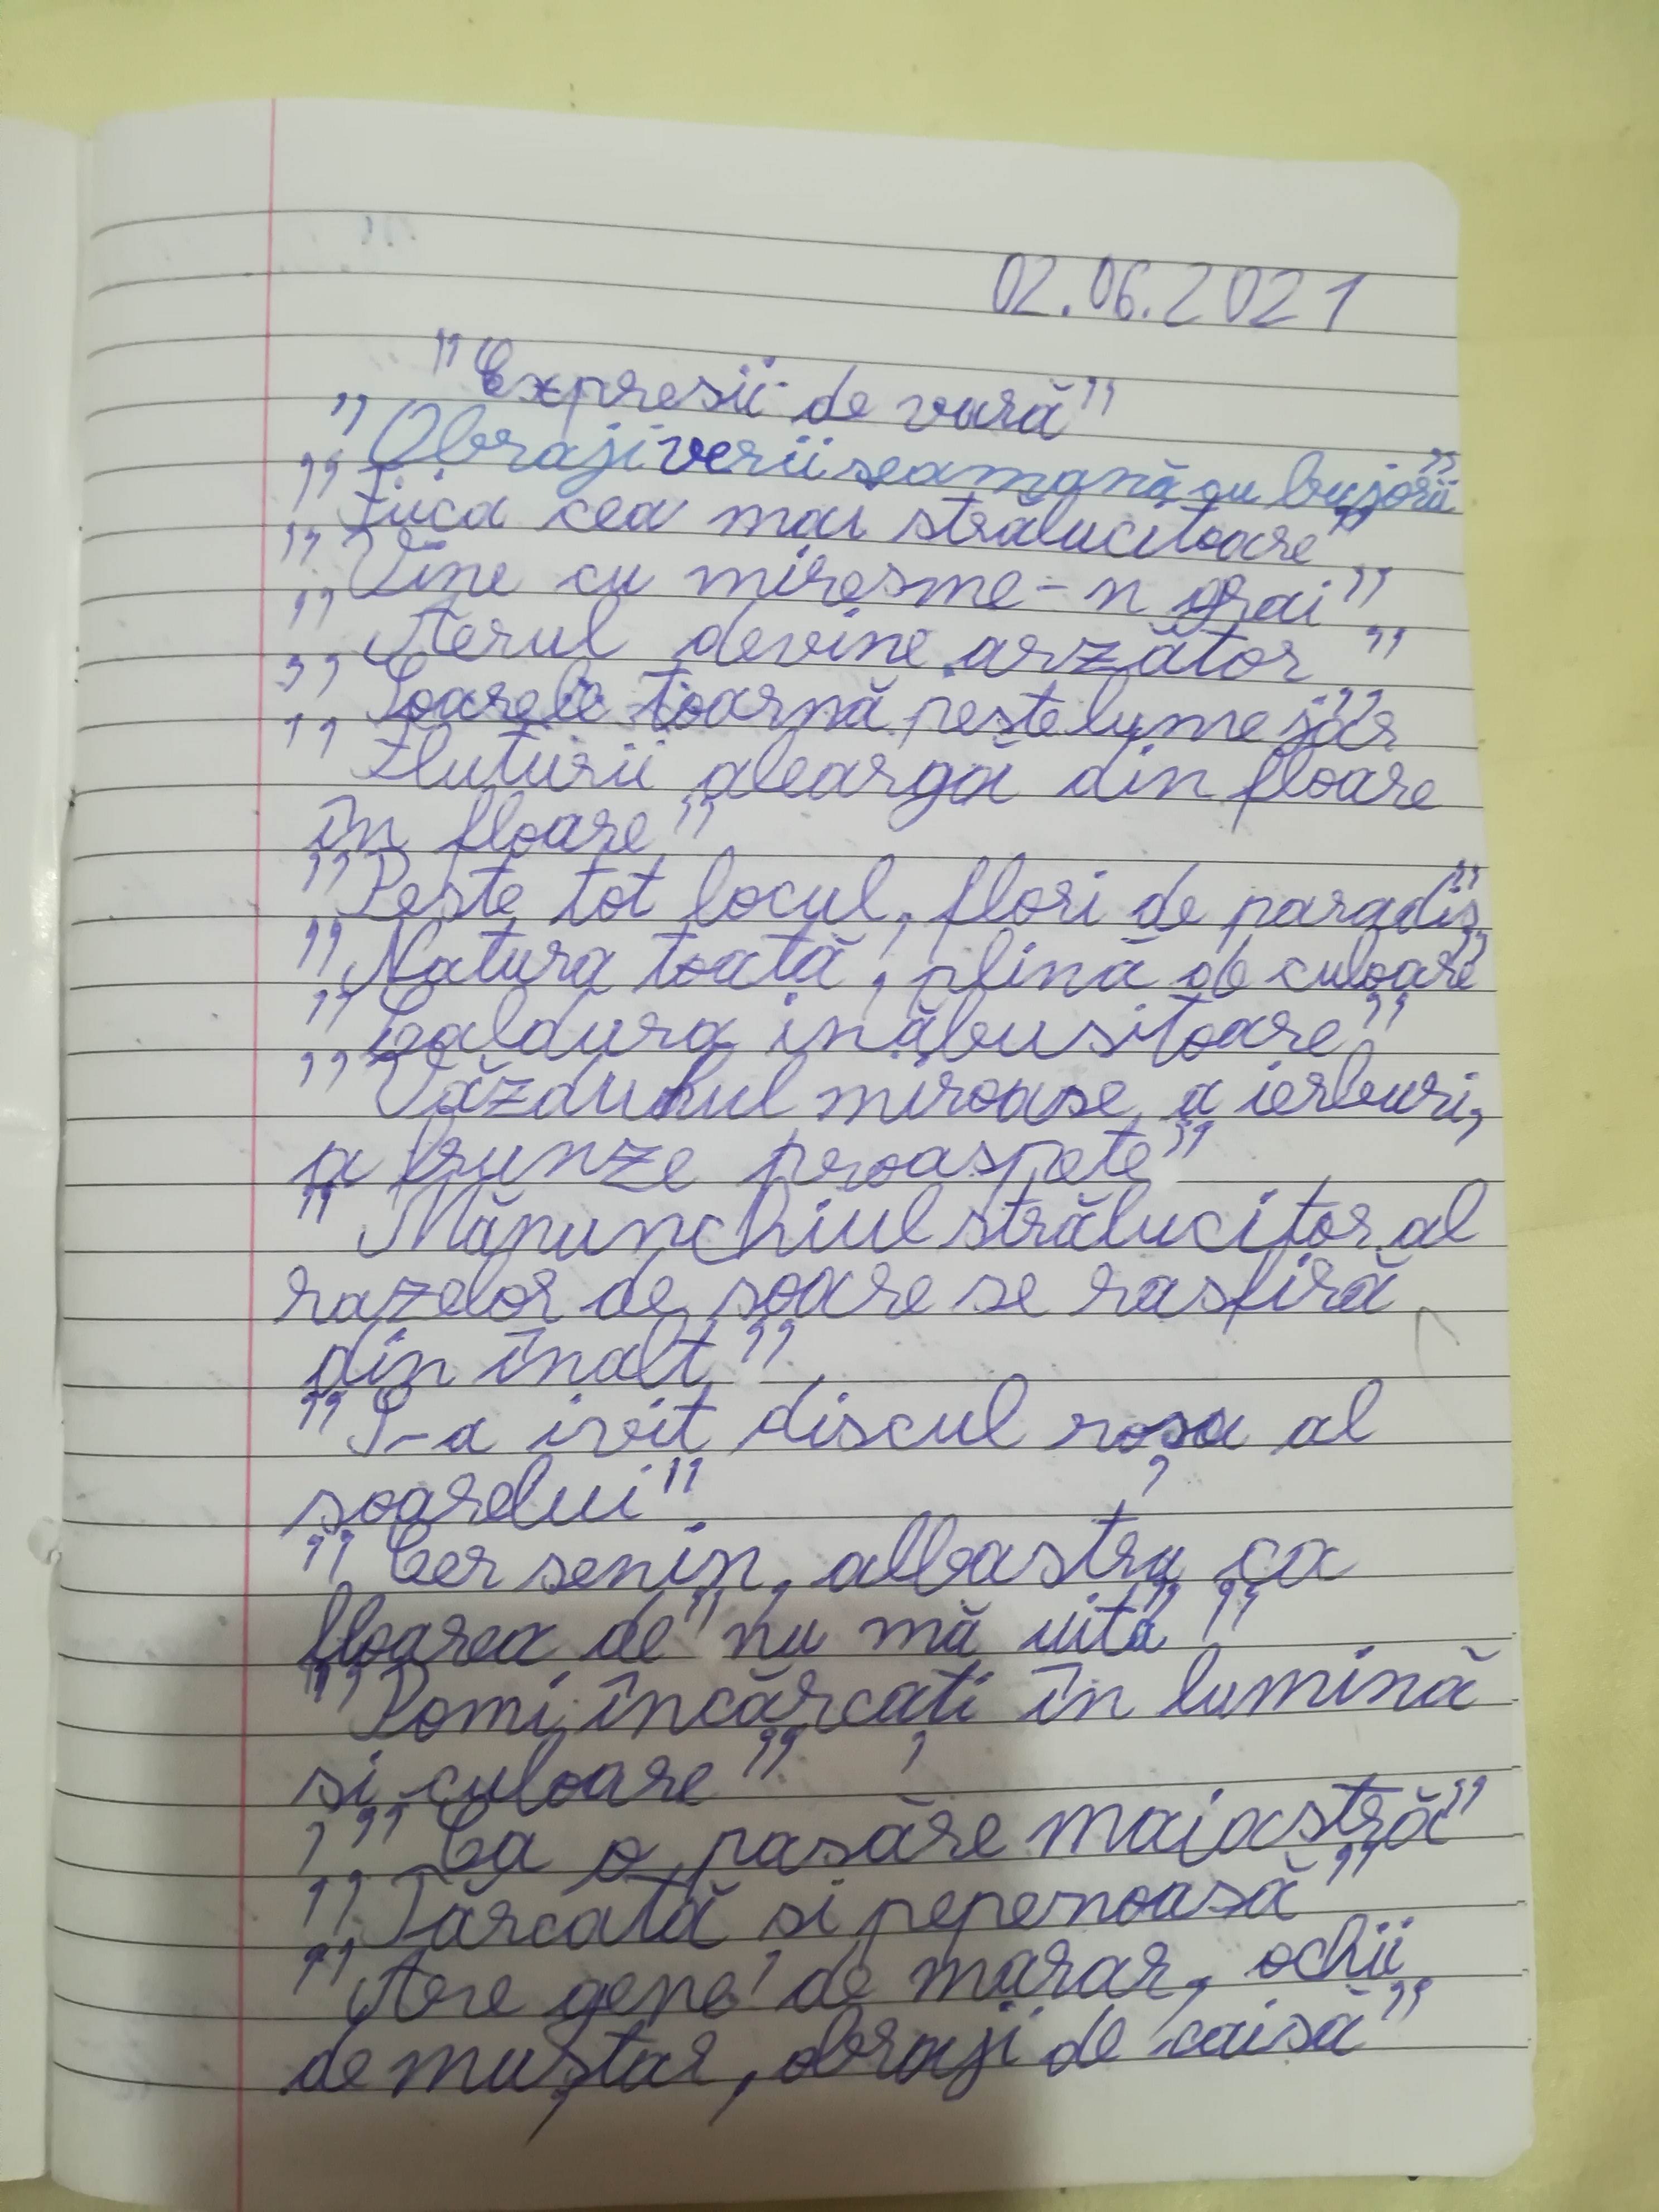 02.06.2021
"Expresii de vară"
"Obraji verii seamănă cu bujorii"
"Fiica cea mai strălucitoare"
"Vine cu miresme-n grai"
"Aerul devine arzător"
"Soarele toarnă peste lume jar"
"Fluturii aleargă din floare
în floare"
"Peste tot locul, flori de paradis"
"Natura toată, plină de culoare"
"Caldura inăbusitoare"
"Văzduhul miroase a ierburi,
a frunze proaspete"
"Mănunchiul strălucitor al
razelor de soare se rasfiră
din înalt"
"S-a ivit discul roșu al
soarelui"
"Cer senin, albastru ca
floarea de "nu mă uita""
"Pomi încărcați în lumină
si culoare"
"Ca o pasăre maiastră"
"Tărcată și pepenoasă"
"Are gene de marar, ochii
de muștar, obraji de caisă"